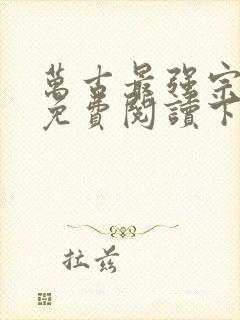 萬古最強宗
免費閱讀下
拉茲